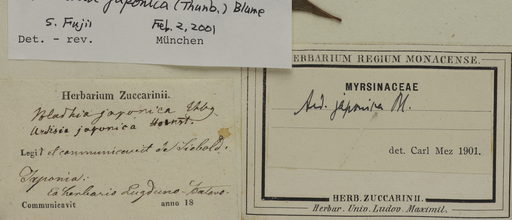 japonica (Thunb.) Blume
S. Fujii Feb. 2, 2001
Det. - rev. München
Herbarium Zuccarinii.
Bladhia japonica Thbg
Ardisia japonica Hornst.
Legit et communicavit de Siebold.
Japonia:
ex herbario Lugduno-Batavo.
Communicavit anno 18
HERBARIUM REGIUM MONACENSE.
MYRSINACEAE
Ard. japonica Bl.
det. Carl Mez 1901.
HERB. ZUCCARINII.
Herbar. Univ. Ludov. Maximil.